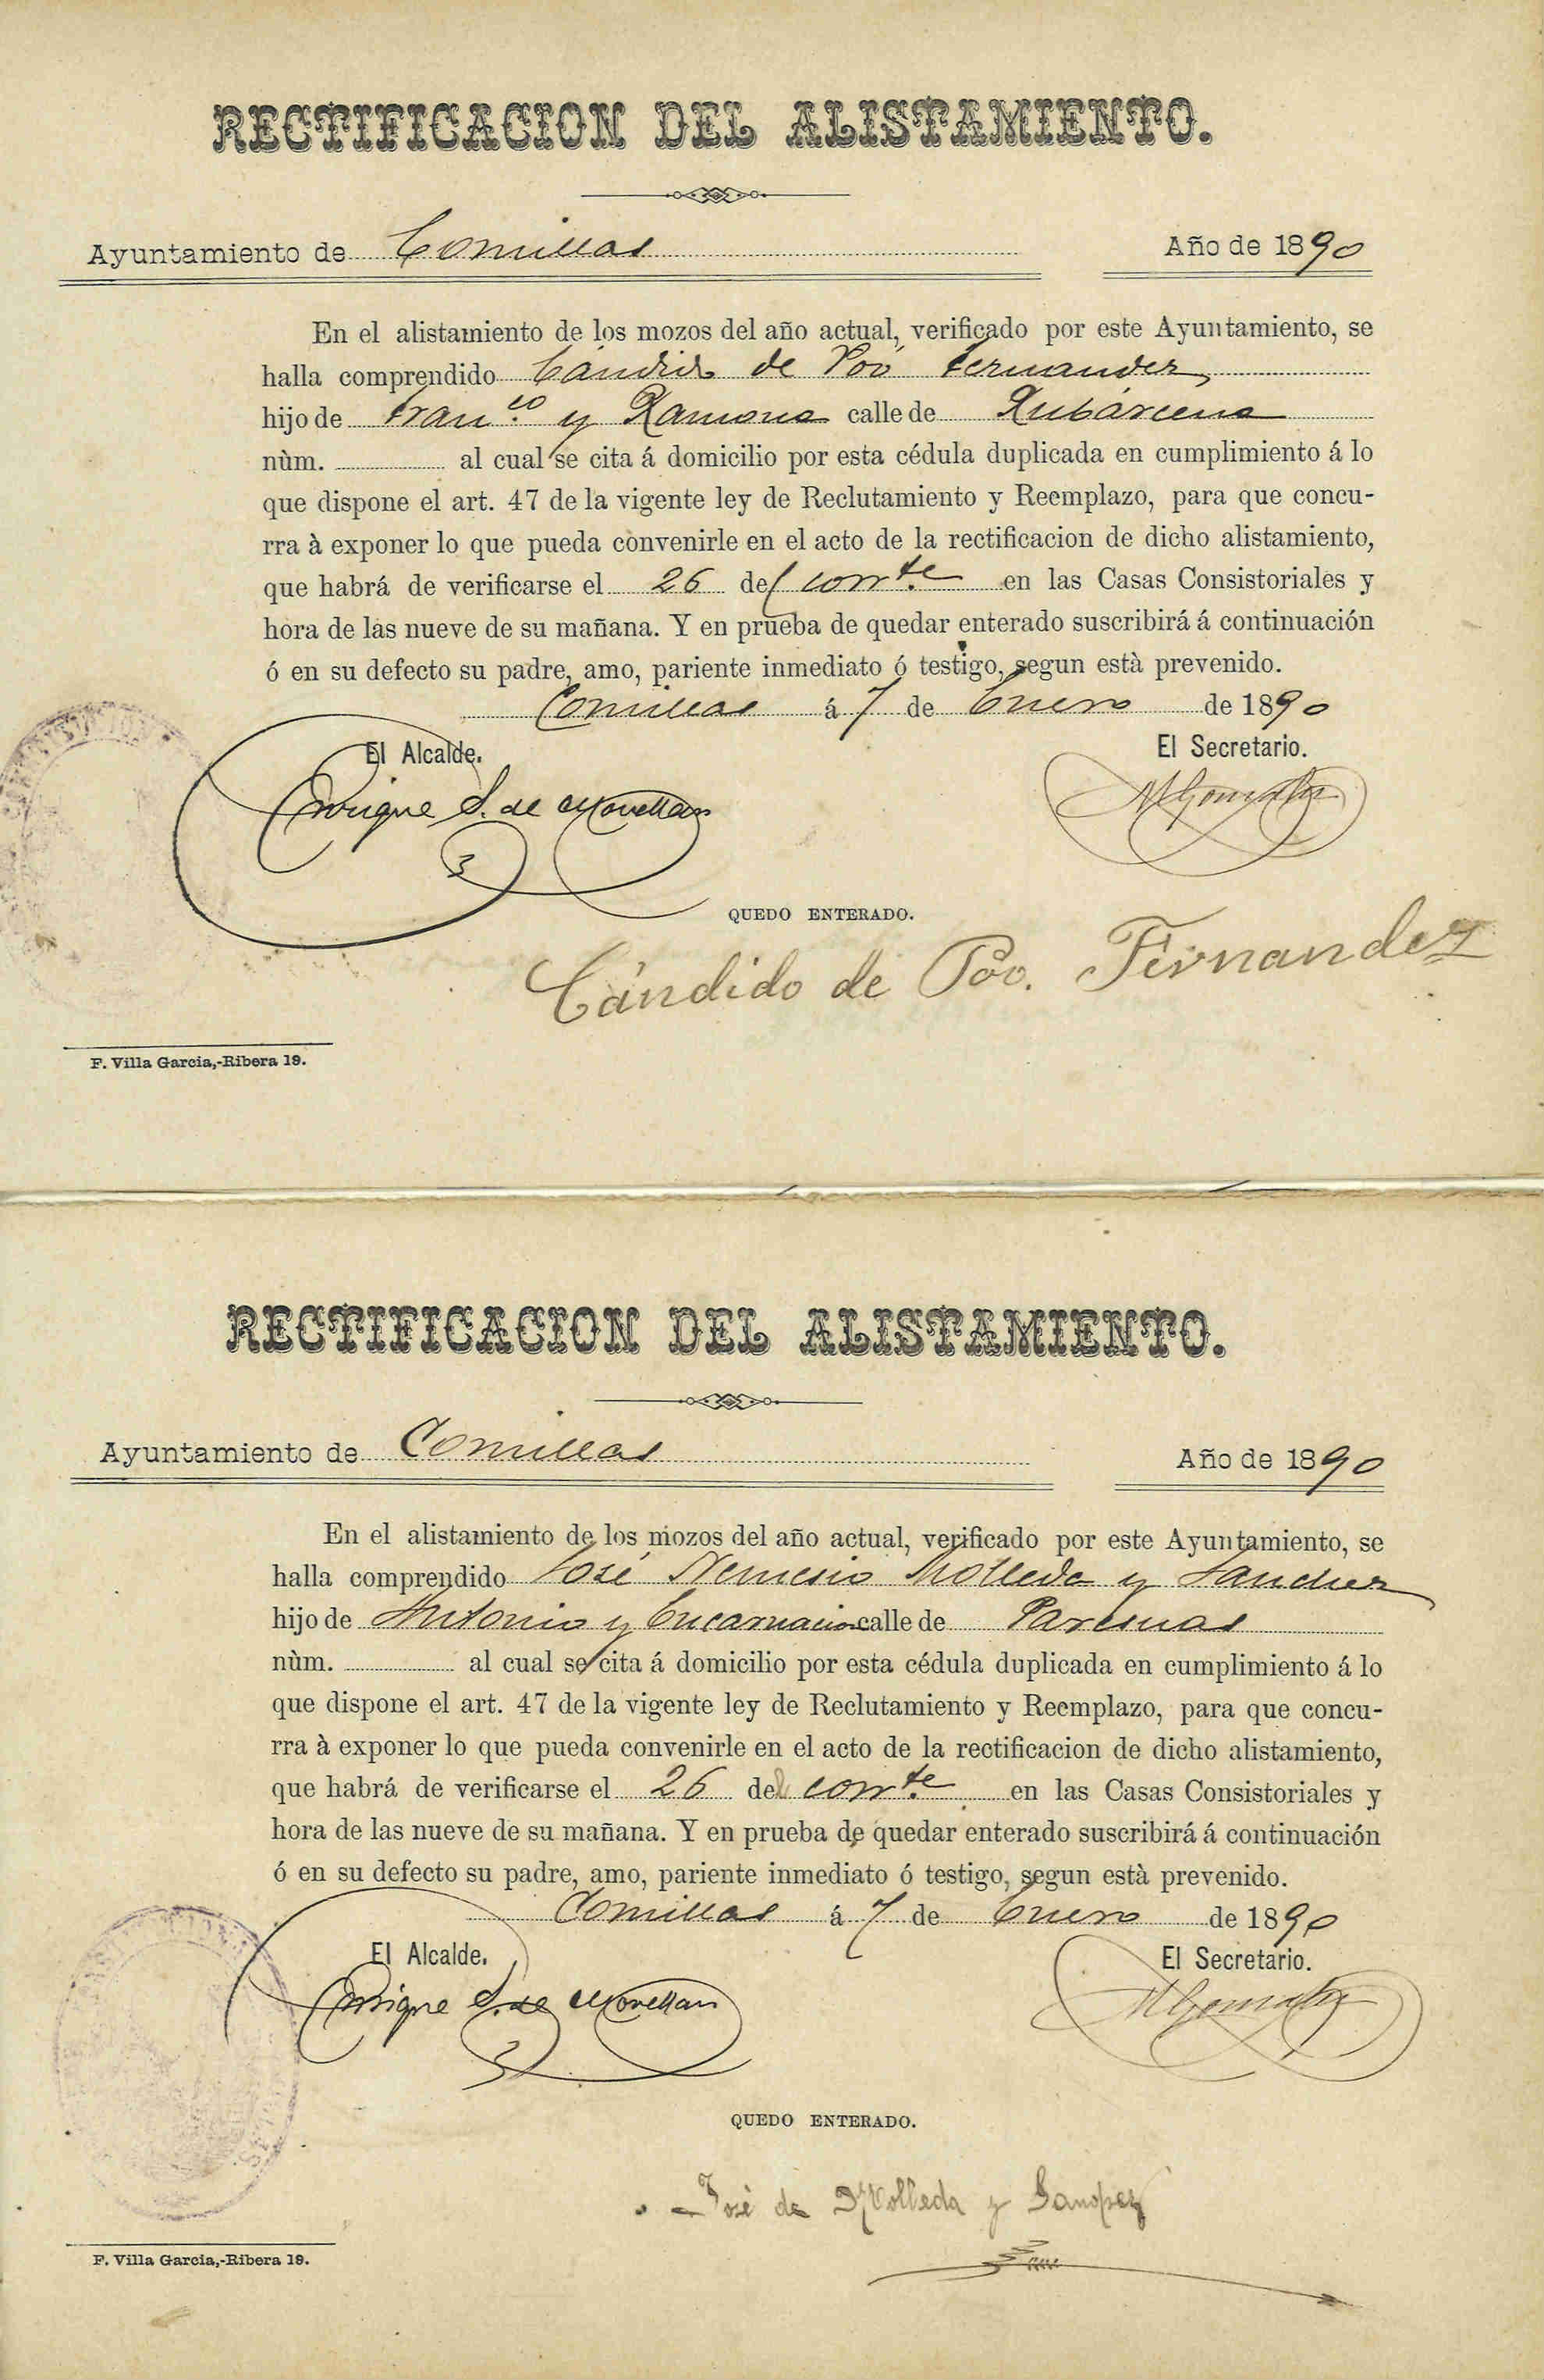 RECTIFICACION DEL ALISTAMIENTO.
Ayuntamiento de Comillas Año de 1890
En el alistamiento de los mozos del año actual, verificado por este Ayuntamiento, se
halla comprendido Cándido de Poó Fernandez
hijo de Fran.co y Ramona calle de Rubárcena
nùm. al cual se cita á domicilio por esta cédula duplicada en cumplimiento á lo
que dispone el art. 47 de la vigente ley de Reclutamiento y Reemplazo, para que concu-
rra à exponer lo que pueda convenirle en el acto de la rectificacion de dicho alistamiento,
que habrá de verificarse el 26 del corr.te en las Casas Consistoriales y
hora de las nueve de su mañana. Y en prueba de quedar enterado suscribirá á continuación
ó en su defecto su padre, amo, pariente inmediato ó testigo, segun està prevenido.
Comillas á 7 de Enero de 1890
El Alcalde. El Secretario.
Enrique S. de Movellan MGonzalez
QUEDO ENTERADO.
Cándido de Poo. Fernandez
F. Villa Garcia,-Ribera 19.
RECTIFICACION DEL ALISTAMIENTO.
Ayuntamiento de Comillas Año de 1890
En el alistamiento de los mozos del año actual, verificado por este Ayuntamiento, se
halla comprendido José Nemesio Molleda y Sanchez
hijo de Antonio y Encarnacion calle de Paresnas
nùm. al cual se cita á domicilio por esta cédula duplicada en cumplimiento á lo
que dispone el art. 47 de la vigente ley de Reclutamiento y Reemplazo, para que concu-
rra à exponer lo que pueda convenirle en el acto de la rectificacion de dicho alistamiento,
que habrá de verificarse el 26 del corr.te en las Casas Consistoriales y
hora de las nueve de su mañana. Y en prueba de quedar enterado suscribirá á continuación
ó en su defecto su padre, amo, pariente inmediato ó testigo, segun està prevenido.
Comillas á 7 de Enero de 1890
El Alcalde. El Secretario.
Enrique S. de Movellan MGonzalez
QUEDO ENTERADO.
José de Molleda y
F. Villa Garcia,-Ribera 19.